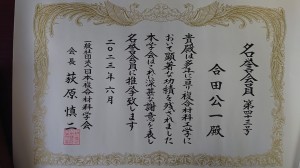 名誉会員 第四十三号
合田公一殿
貴殿は多年に亘り複合材料工学に
おいて顕著な功績を残されました
本学会はこれに深甚な謝意を表し
名誉会員に推挙致します
二〇二三年六月
一般社団法人日本複合材料学会
会長 荻原慎二